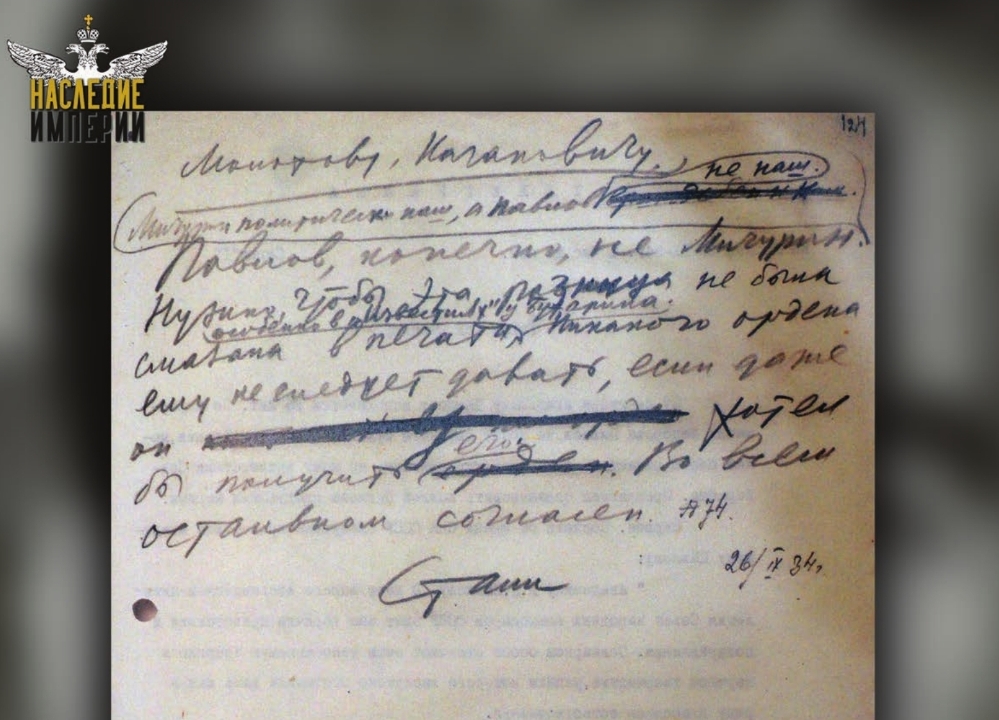 НАСЛЕДИЕ
ИМПЕРИИ
124
Молотову, Кагановичу.
не наш.
Мичурин политически наш, а Павлов
Павлов, конечно, не Мичурин.
Нужно, чтобы эта разница не была
особенно в "Известиях" у Бухарина.
смазана в печати, Никакого ордена
ему не следует давать, если даже
он хотел
его.
бы получить Во всем
остальном согласен. №74.
26/IX 34.
Сталин